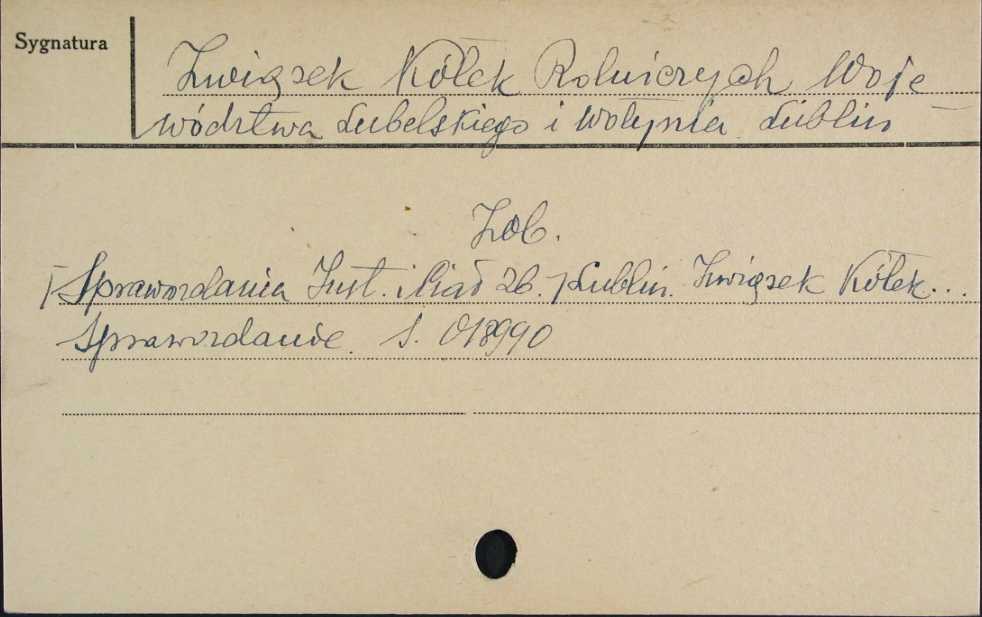 Sygnatura
Związek Kółek Rolniczych Woje
wództwa Lubelskiego i Wołynia Lublin
Zob.
Sprawozdania Inst. i 26. Lublin. Związek Kółek...
Sprawozdanie. S. 018990